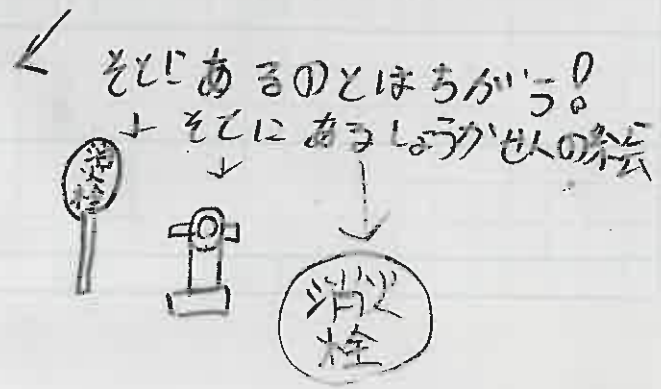 そとにあるのとはちがう!
そとにあるしょうかせんの絵
消火栓
消火
栓